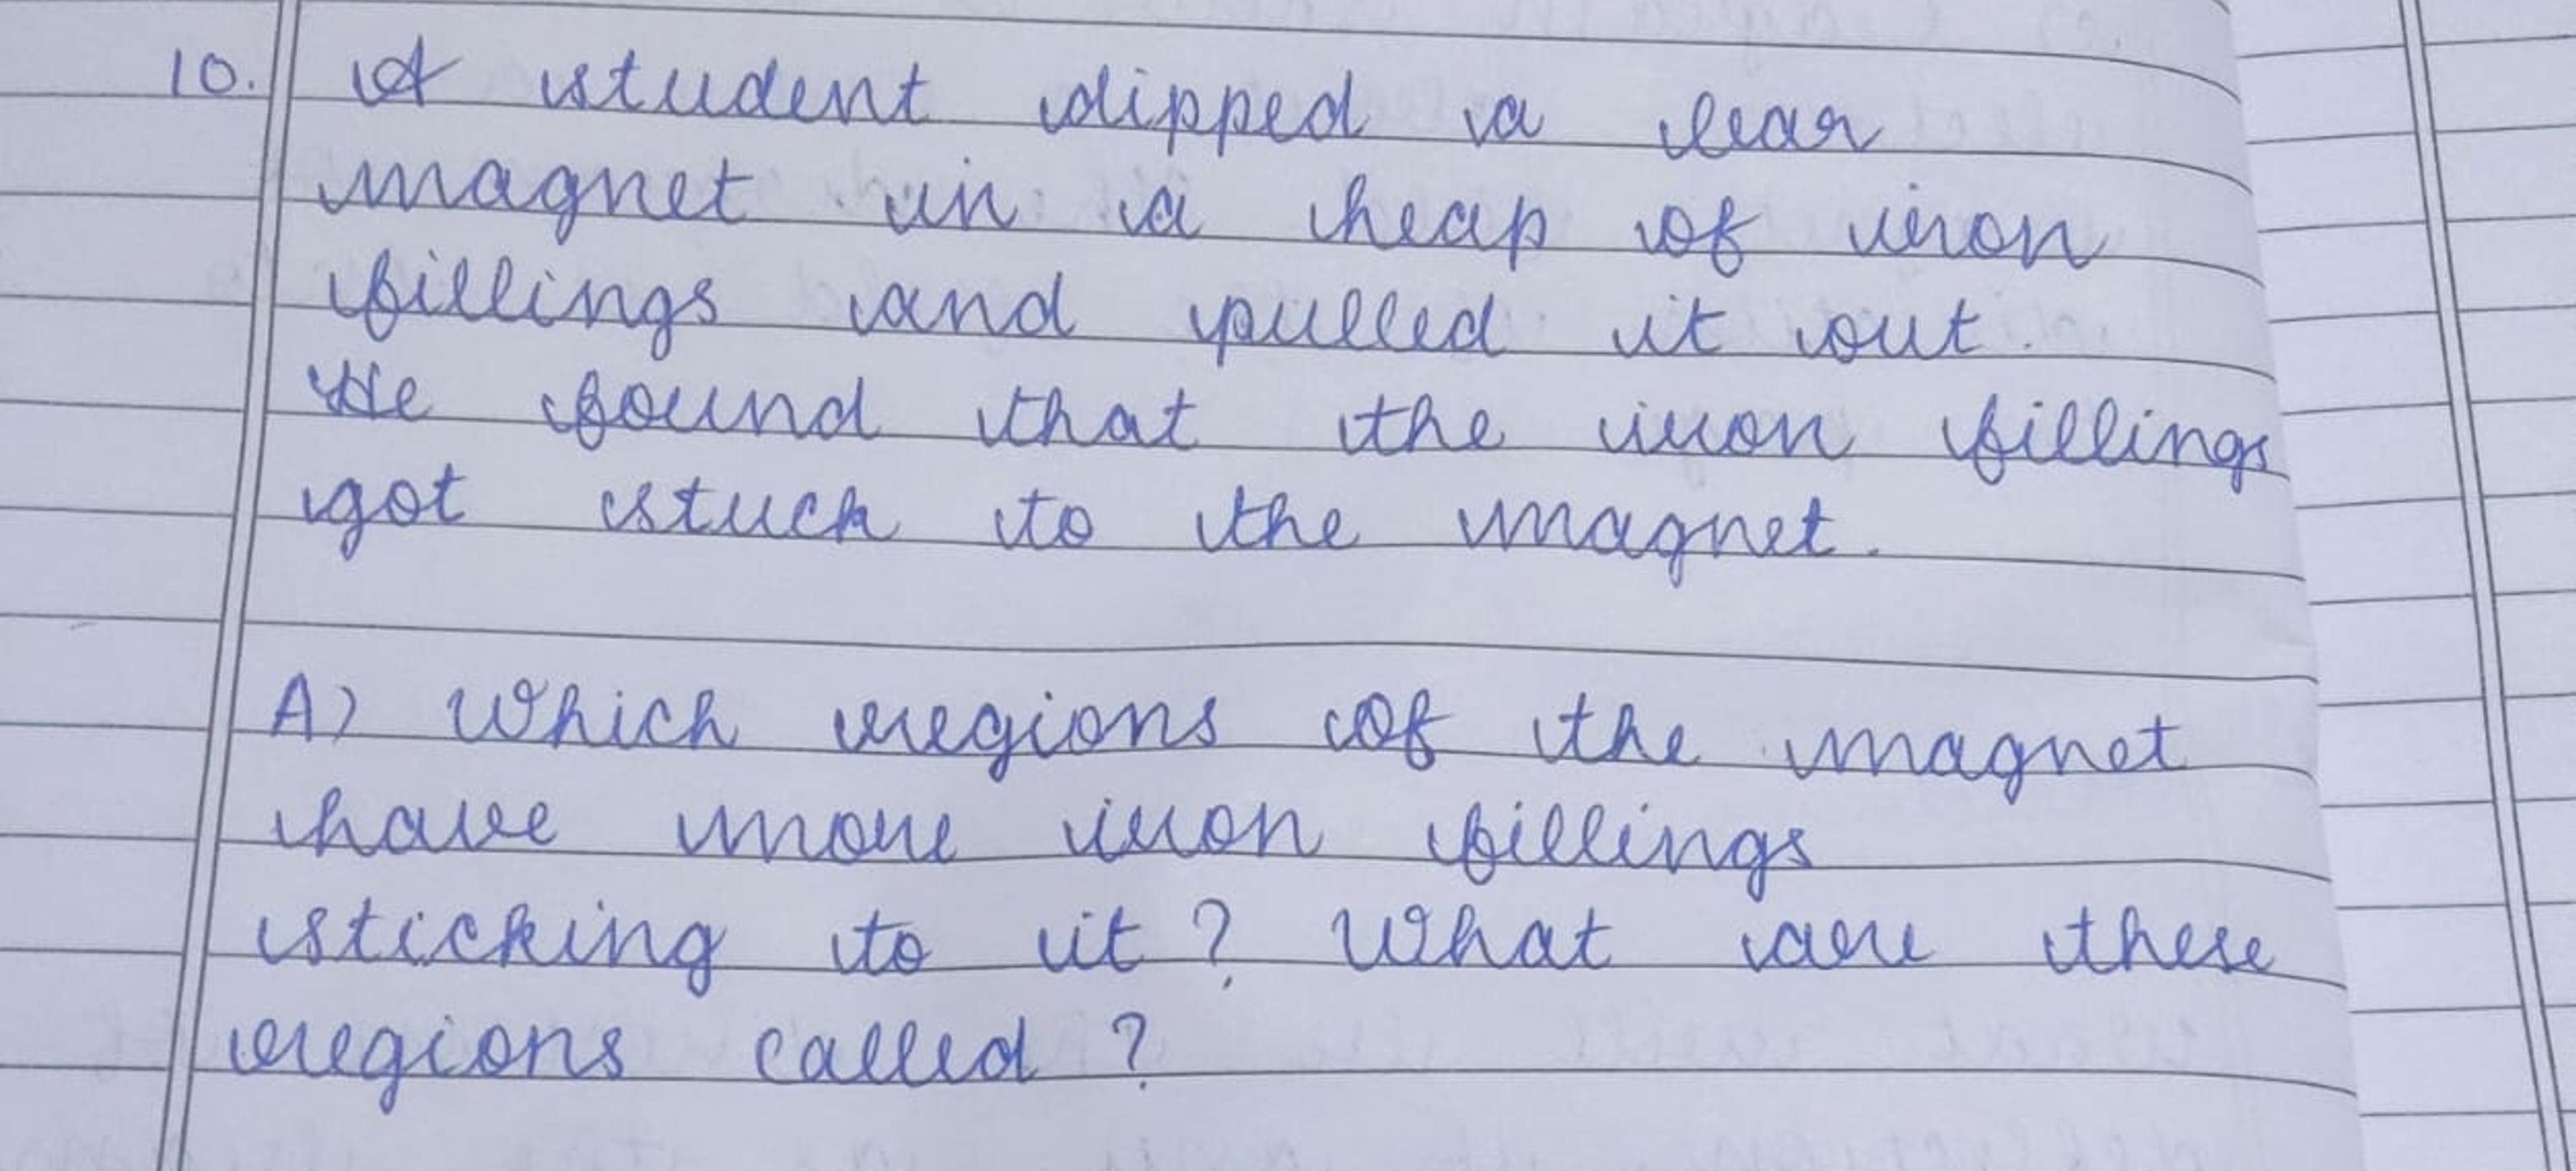 10. A student dipped a bar
magnet in a heap of iron
fillings and pulled it out.
He found that the iron fillings
got stuck to the magnet.
A) Which regions of the magnet
have more iron fillings
sticking to it? What are these
regions called?